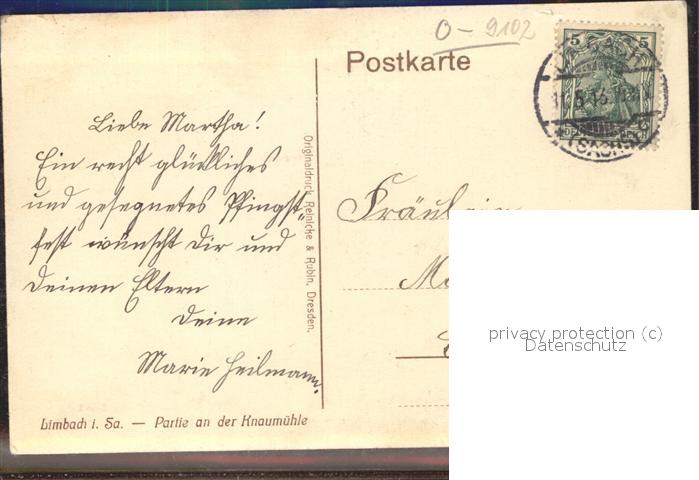 O - 9102
Postkarte
5 5
Liebe Martha!
Ein recht glückliches
und gesegnetes Pfingst-
fest wünscht Dir und
Deinen Eltern
Deine
Marie Heilmann.
Originaldruck Reinicke & Rubin, Dresden.
Fräulein
Limbach i. Sa. — Partie an der Knaumühle
privacy protection (c)
Datenschutz